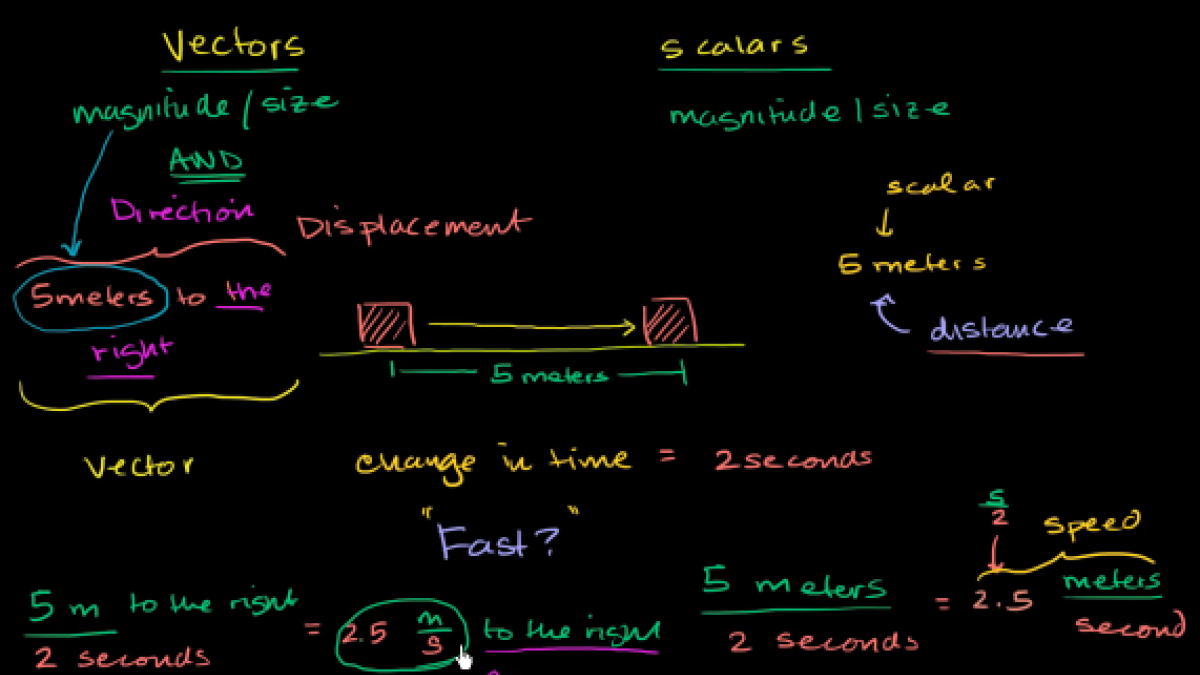 Vectors
magnitude / size
AND
Direction
Displacement
5 meters to the
right
vector
scalars
magnitude | size
scalar
5 meters
distance
5 meters
change in time = 2 seconds
"Fast?"
5 m to the right
2 seconds
= 2.5 m
s
to the right
5 meters
2 seconds
=
5
2
speed
2.5 meters
second